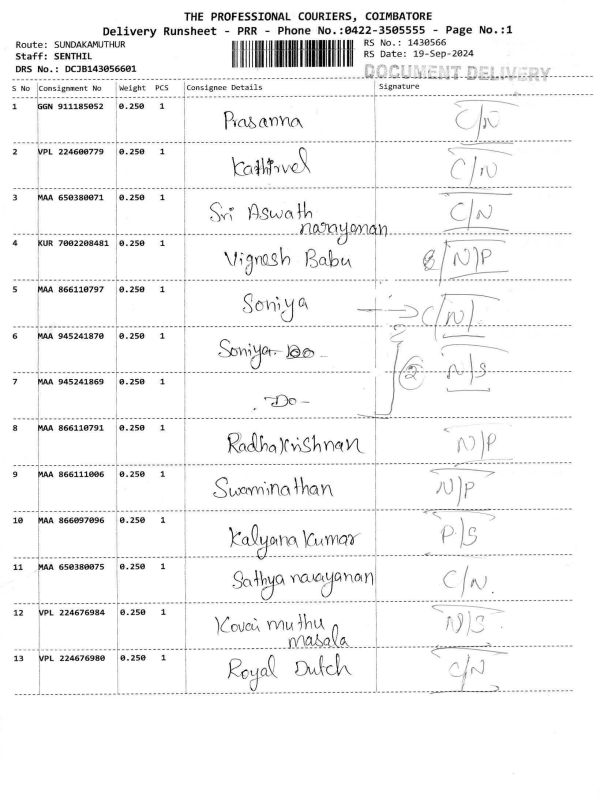 THE PROFESSIONAL COURIERS, COIMBATORE
Delivery Runsheet - PRR - Phone No.:0422-3505555 - Page No.:1
Route: SUNDAKAMUTHUR RS No.: 1430566
Staff: SENTHIL RS Date: 19-Sep-2024
DRS No.: DCJB143056601 DOCUMENT DELIVERY
S No Consignment No Weight PCS Consignee Details Signature
1 GGN 911185052 0.250 1 Prasanna C/N
2 VPL 224600779 0.250 1 Kathirvel C/N
3 MAA 650380071 0.250 1 Sri Aswath C/N
narayanan
4 KUR 7002208481 0.250 1 Vignesh Babu N/P
5 MAA 866110797 0.250 1 Soniya C/N
6 MAA 945241870 0.250 1 Soniya Do N/S
7 MAA 945241869 0.250 1 - Do - 2
8 MAA 866110791 0.250 1 Radhakrishnan N/P
9 MAA 866111006 0.250 1 Swaminathan N/P
10 MAA 866097096 0.250 1 Kalyana Kumar P/S
11 MAA 650380075 0.250 1 Sathya narayanan C/N.
12 VPL 224676984 0.250 1 Kovai muthu N/S.
masala
13 VPL 224676980 0.250 1 Royal Dutch C/N